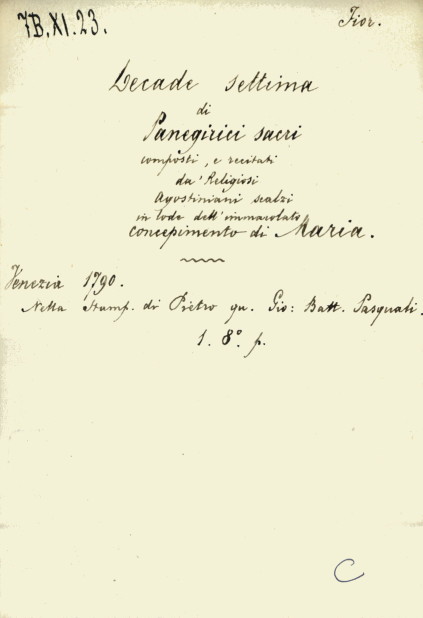 7B.XI.23.
Fior.
Decade settima
di
Panegirici sacri
composti, e recitati
da' Religiosi
Agostiniani scalzi
in lode dell' immacolato
concepimento di Maria.
Venezia 1790.
Nella Stamp. di Pietro qu. Gio: Batt. Pasquali.
1. 8°. p.
C